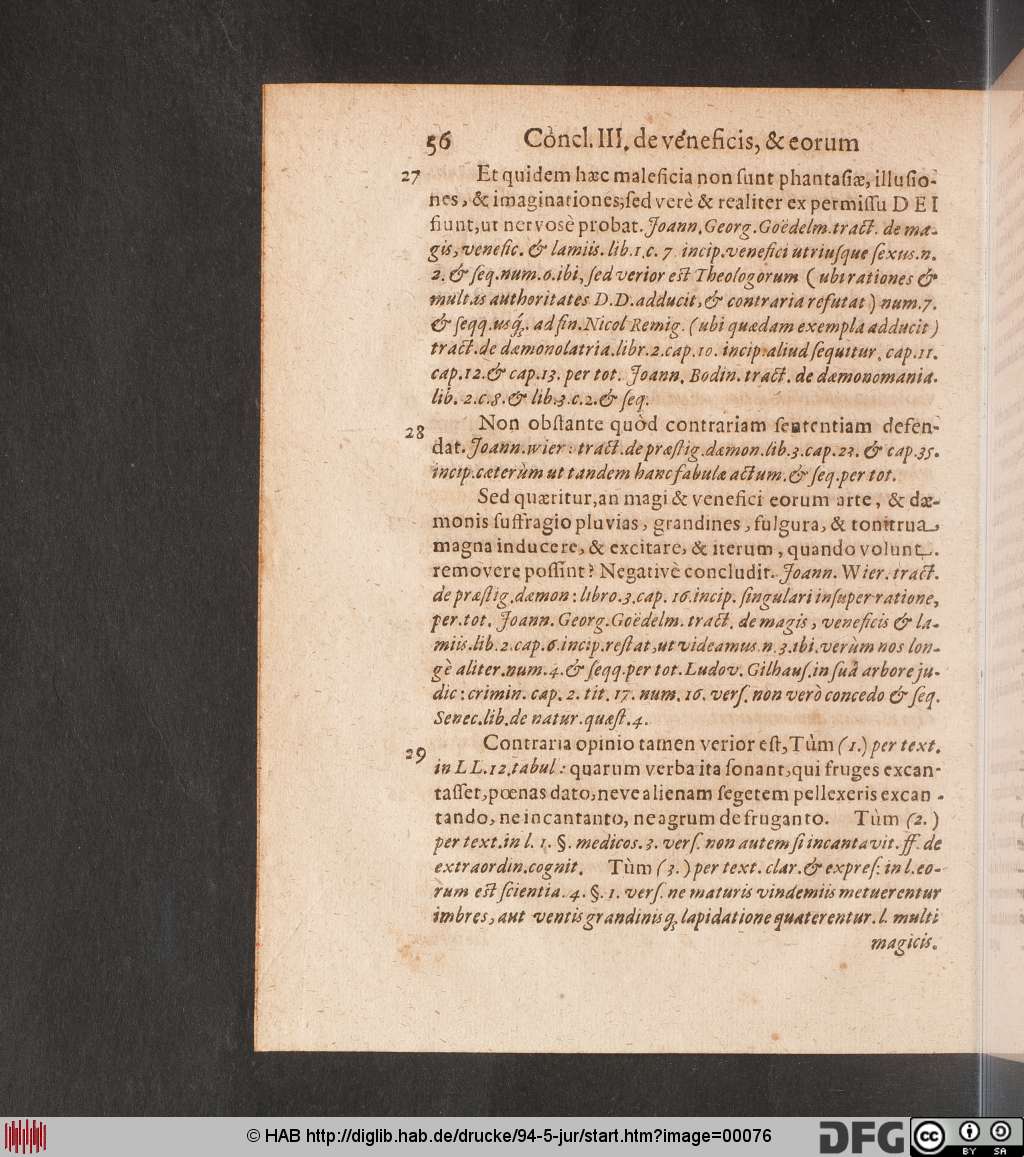 56 Concl. III. de veneficis, & eorum
27 Et quidem hæc maleficia non ſunt phantaſiæ, illuſio-
nes, & imaginationes; ſed verè & realiter ex permiſſu DEI
fiunt, ut nervosè probat. Joann. Georg. Goëdelm. tract. de ma-
gis, venefic. & lamiis. lib. 1. c. 7. incip. venefici utriuſque ſexus. n.
2. & ſeq. num. 6. ibi, ſed verior est Theologorum ( ubi rationes &
multas authoritates D. D. adducit, & contraria refutat ) num. 7.
& ſeqq. usq́;. ad fin. Nicol Remig. (ubi quædam exempla adducit )
tract. de dæmonolatria. libr. 2. cap. 10. incip. aliud ſequitur. cap. 11.
cap. 12. & cap. 13. per tot. Joann. Bodin. tract. de dæmonomania.
lib. 2. c. 8. & lib. 3. c. 2. & ſeq.
28 Non obſtante quòd contrariam ſententiam defen-
dat. Joann. wier: tract. de præſtig. dæmon. lib. 3. cap. 23. & cap. 35.
incip. cæterùm ut tandem hanc fabulæ actum. & ſeq. per tot.
Sed quæritur, an magi & venefici eorum arte, & dæ-
monis ſuffragio pluvias, grandines, fulgura, & tonitrua,
magna inducere, & excitare, & iterum, quando volunt.
removere poſſint? Negativè concludit. Joann. Wier. tract.
de præſtig. dæmon: libro. 3. cap. 16. incip. ſingulari inſuper ratione,
per. tot. Joann. Georg. Goëdelm. tract. de magis, veneficis & la-
miis. lib. 2. cap. 6. incip. reſtat, ut videamus. n. 3. ibi. verùm nos lon-
gè aliter. num. 4. & ſeqq. per tot. Ludov. Gilhauſ. in ſuâ arbore ju-
dic: crimin. cap. 2. tit. 17. num. 16. verſ. non verò concedo & ſeq.
Senec. lib. de natur. quæſt. 4.
29 Contraria opinio tamen verior eſt, Tùm (1.) per text.
in LL. 12. tabul: quarum verba ita ſonant, qui fruges excan-
taſſet, pœnas dato, neve alienam ſegetem pellexeris excan-
tando, ne incantanto, ne agrum defruganto. Tùm (2.)
per text. in l. 1. §. medicos. 3. verſ. non autem ſi incantavit. ff. de
extraordin. cognit. Tùm (3.) per text. clar. & expreſ: in l. eo-
rum est ſcientia. 4. §. 1. verſ. ne maturis vindemiis metuerentur
imbres, aut ventis grandinisq; lapidatione quaterentur. l. multi
magicis.
© HAB http://diglib.hab.de/drucke/94-5-jur/start.htm?image=00076
DFG
cc BY SA